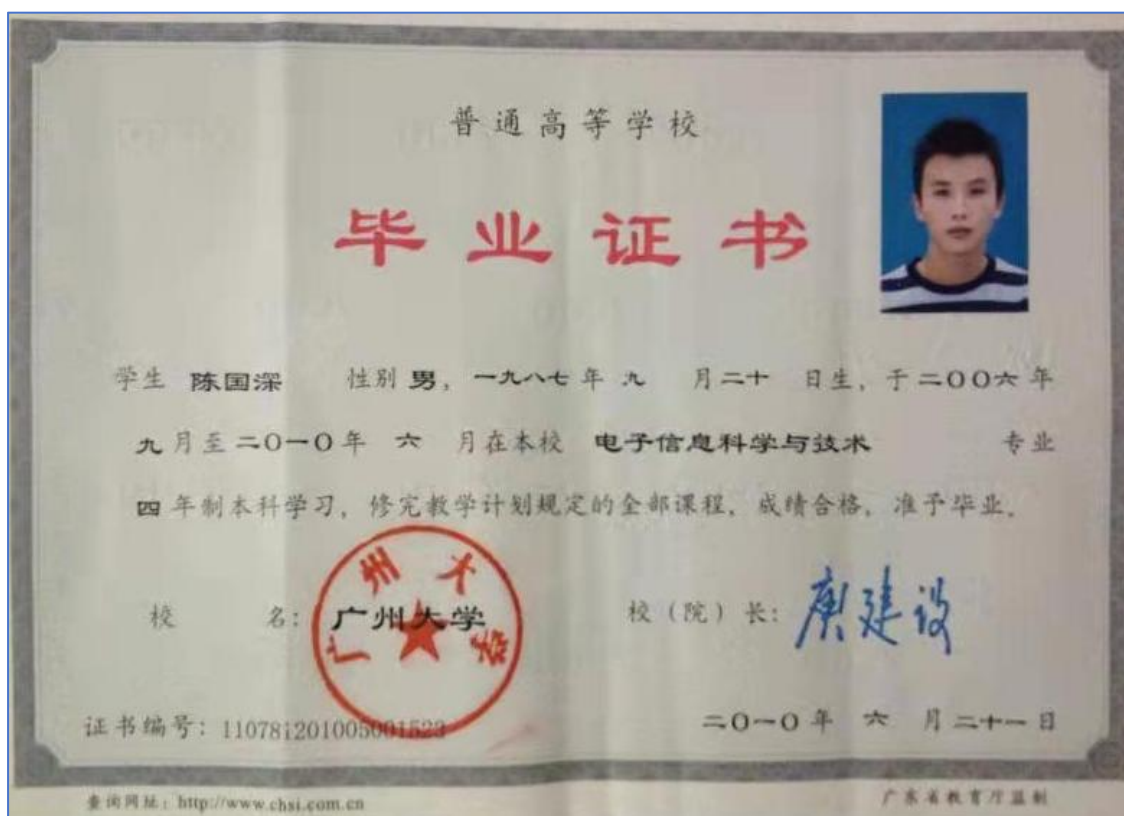 普通高等学校
毕业证书
学生 陈国深 性别 男，一九八七年 九 月二十 日生，于二〇〇六年
九月至二〇一〇年 六 月在本校 电子信息科学与技术 专业
四年制本科学习，修完教学计划规定的全部课程，成绩合格，准予毕业。
校 名：广州大学
广州大学
校（院）长：庾建设
证书编号：110781201005001523
二〇一〇年 六 月二十一日
查询网址：http://www.chsi.com.cn
广东省教育厅监制